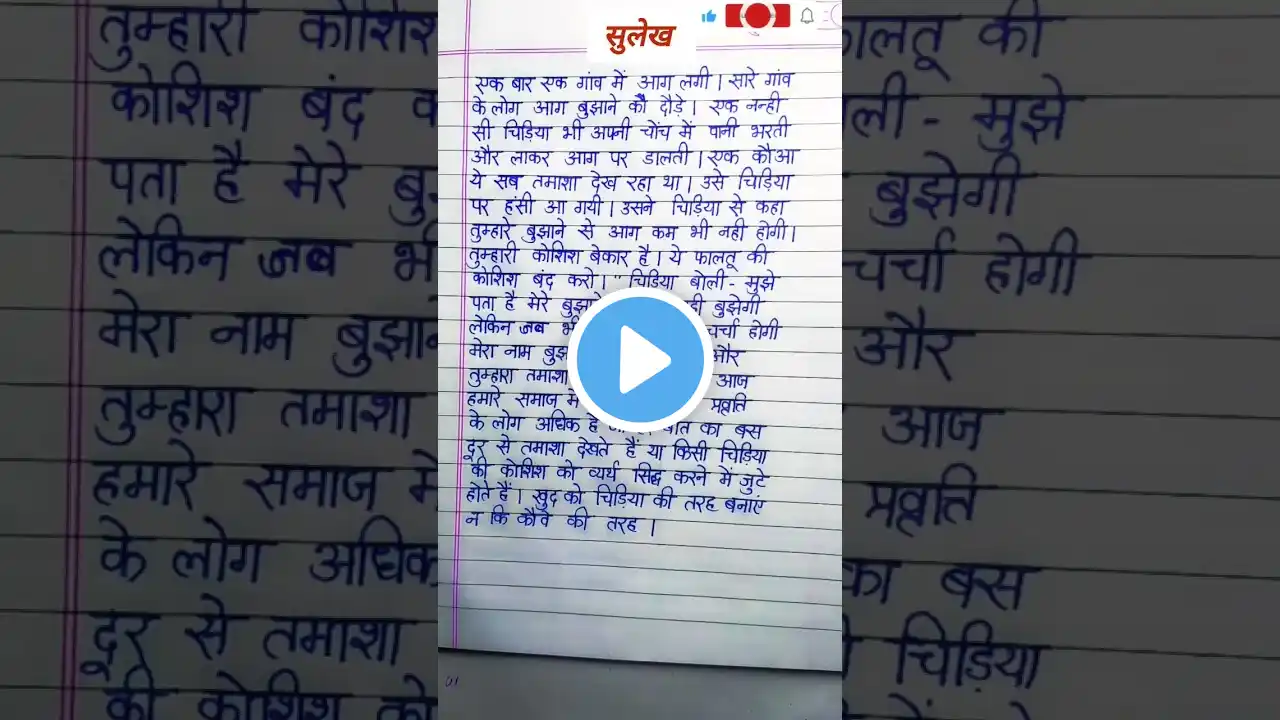 सुलेख
एक बार एक गांव में आग लगी । सारे गांव
के लोग आग बुझाने को दौड़े । एक नन्ही
सी चिड़िया भी अपनी चोंच में पानी भरती
और लाकर आग पर डालती । एक कौआ
ये सब तमाशा देख रहा था । उसे चिड़िया
पर हंसी आ गयी । उसने चिड़िया से कहा
तुम्हारे बुझाने से आग कम भी नही होगी ।
तुम्हारी कोशिश बेकार है । ये फालतू की
कोशिश बंद करो । " चिड़िया बोली - मुझे
पता है मेरे बुझाने बुझेगी
लेकिन जब भी चर्चा होगी
मेरा नाम और
तुम्हारा तमाशा आज
हमारे समाज में प्रव्रति
के लोग अधिक है बात का बस
दूर से तमाशा देखते हैं या किसी चिड़िया
की कोशिश को व्यर्थ सिद्ध करने में जुटे
होते हैं । खुद को चिड़िया की तरह बनाएं
न कि कौवे की तरह ।